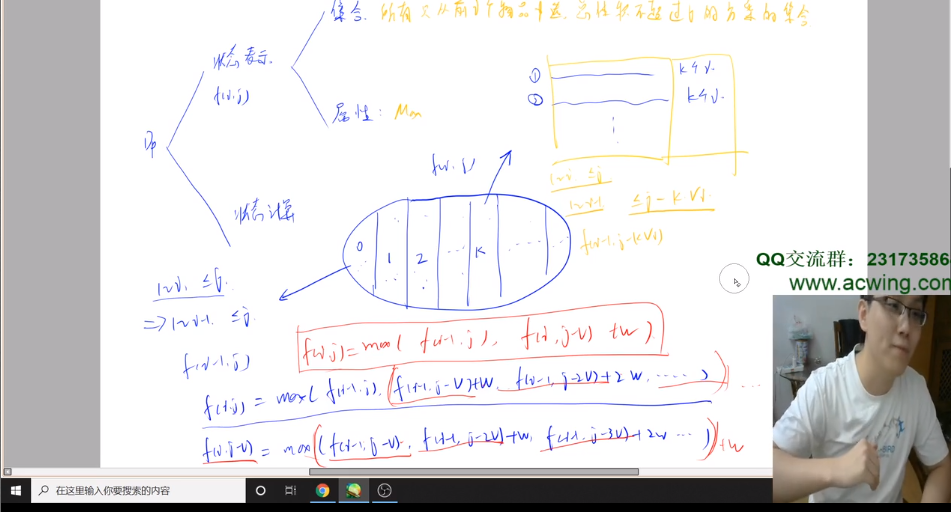 集合. 所有只从前i个物品中选, 总体积不超过j的方案的集合
状态表示
f(i,j)
属性: Max
DP
状态计算
① k个vi
② k个vi
⋮
1~i ≤j
1~i-1 ≤j-kvi
f(i-1, j-kvi)
f(i,j)
0 1 2 … k ……
1~i, ≤j.
⇒1~i-1, ≤j.
f(i-1,j)
f(i,j)=max( f(i-1,j), f(i,j-v)+w )
f(i,j) = max( f(i-1,j), f(i-1,j-v)+w, f(i-1,j-2v)+2w, …… )
f(i,j-v) = max( f(i-1,j-v), f(i-1,j-2v)+w, f(i-1,j-3v)+2w … ) +w
QQ交流群：23173586
www.acwing.com
在这里输入你要搜索的内容